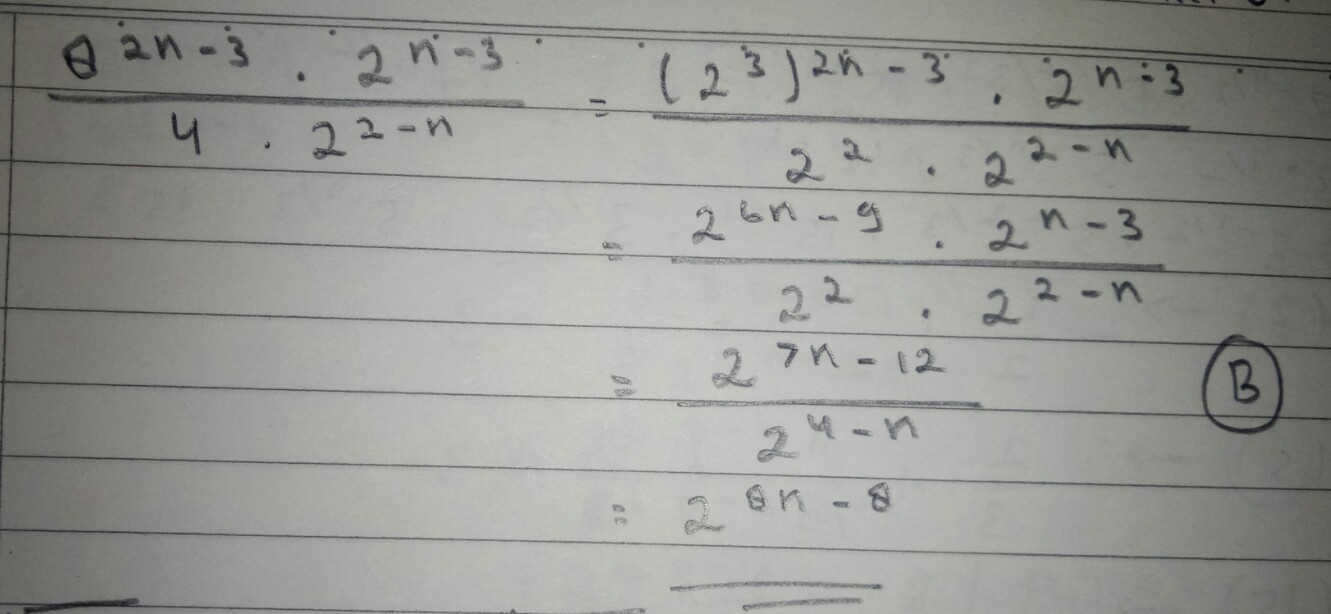 8^{2n-3} . 2^{n-3} / 4 . 2^{2-n} = (2^3)^{2n-3} . 2^{n-3} / 2^2 . 2^{2-n}
= 2^{6n-9} . 2^{n-3} / 2^2 . 2^{2-n}
= 2^{7n-12} / 2^{4-n} B
= 2^{8n-8}